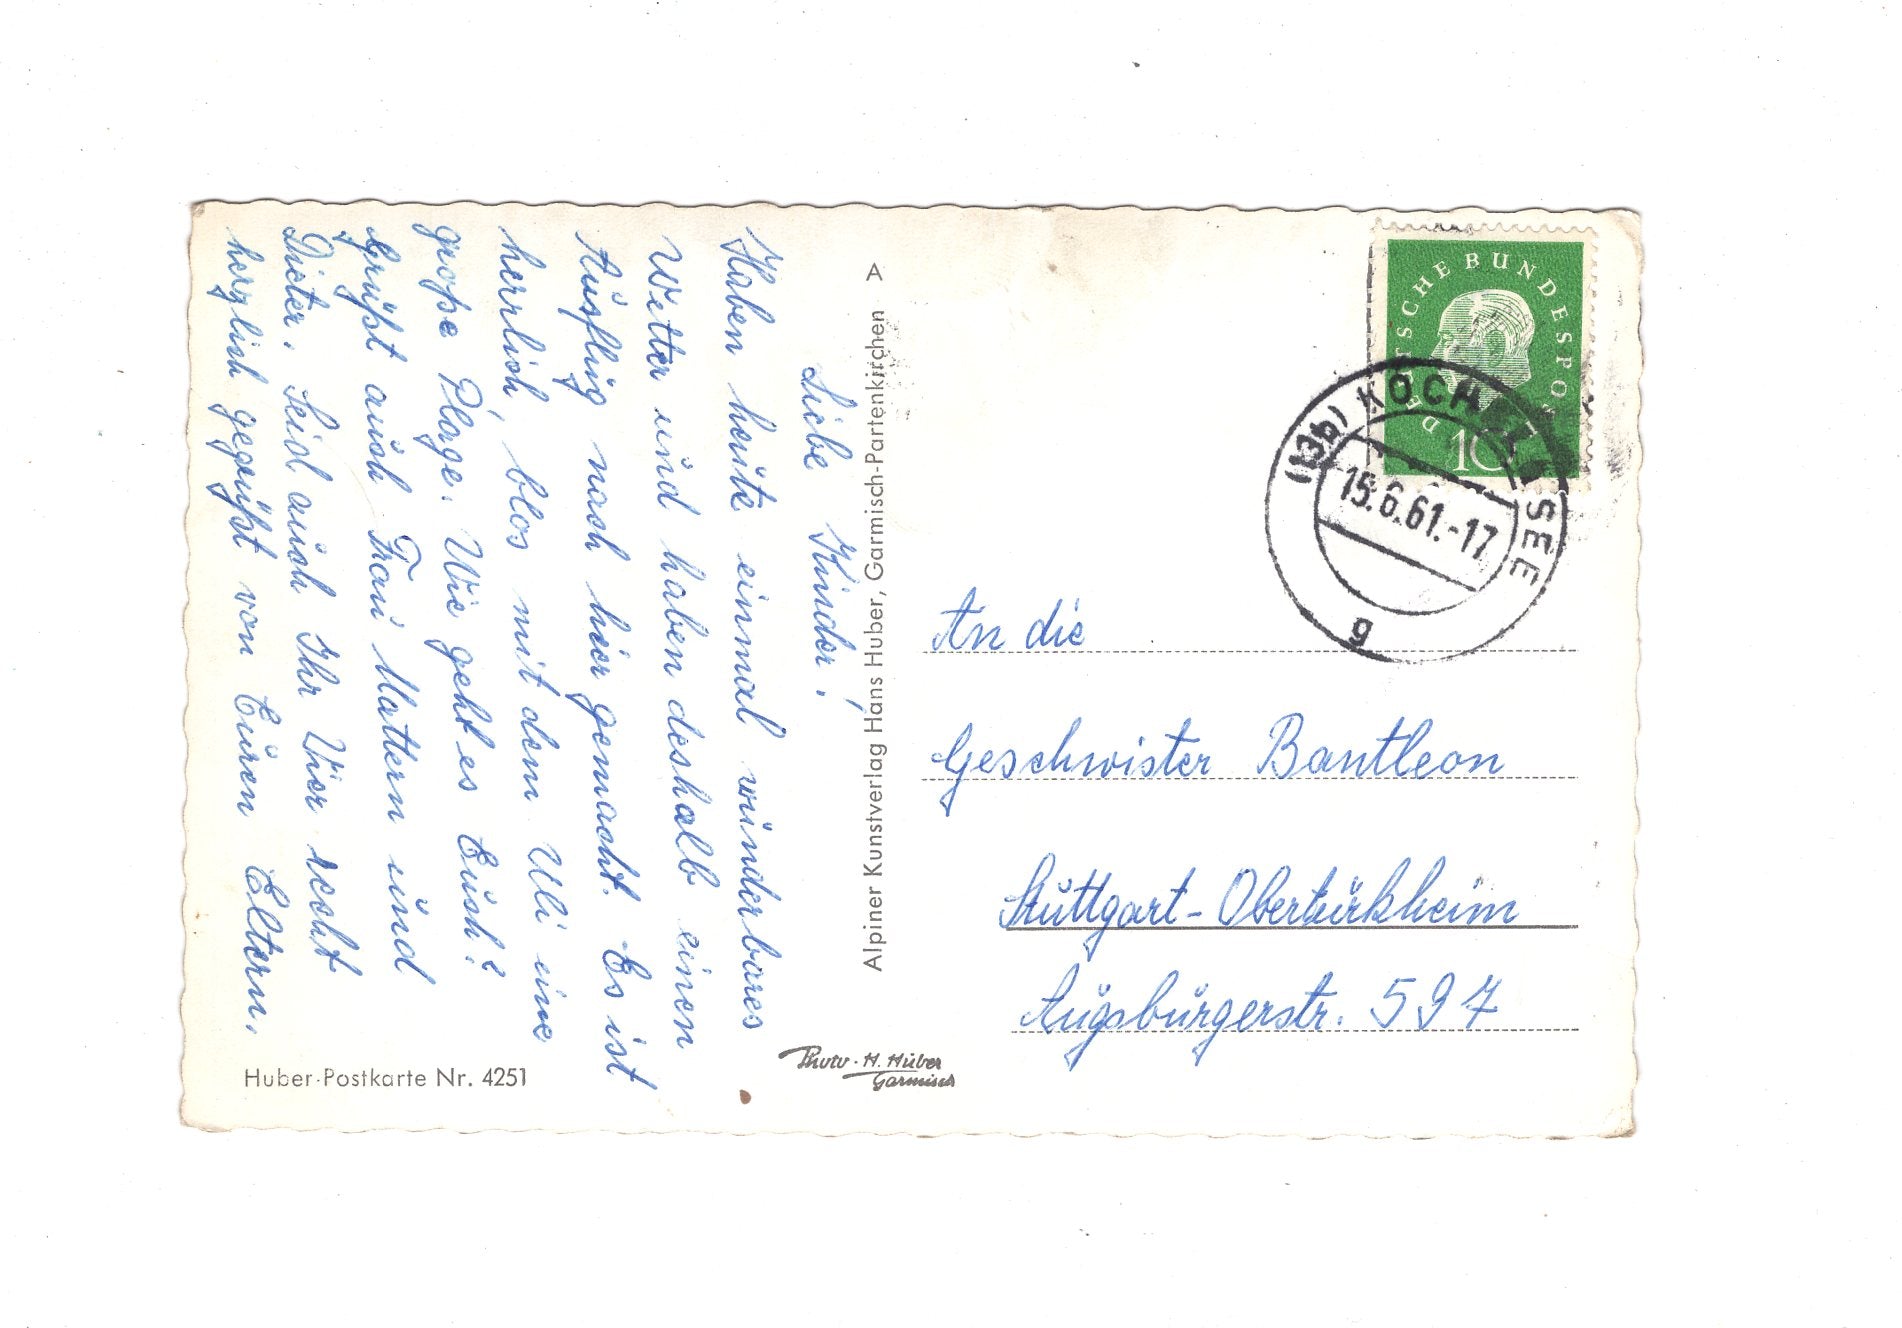 Liebe Kinder!
Haben heute einmal wunderbares
Wetter und haben deshalb einen
Ausflug nach hier gemacht. Es ist
herrlich, blos mit dem Uli eine
große Plage. Wie geht es Euch?
Grüßt auch Frau Mattern und
Dieter. Seid auch Ihr Vier recht
herzlich gegrüßt von Euren Eltern.
Huber-Postkarte Nr. 4251
Alpiner Kunstverlag Hans Huber, Garmisch-Partenkirchen A
Photo · H. Huber
Garmisch
DEUTSCHE BUNDESPOST
10
(13b) KOCHEL A SEE
15.6.61.-17
g
An die
Geschwister Bantleon
Stuttgart-Obertürkheim
Augsburgerstr. 597